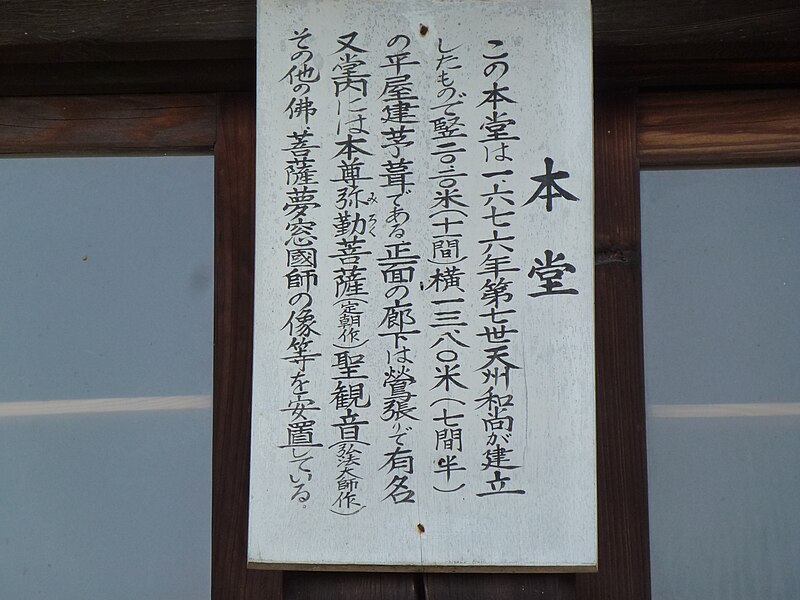 本堂
この本堂は一、六七六年第七世天州和尚が建立
したもので竪二〇・二〇米(十一間)横一三・八〇米(七間半)
の平屋建茅葺である正面の廊下は鶯張りで有名
又堂内には本尊弥勤菩薩(定朝作)聖観音(弘法大師作)
みろく
その他の佛、菩薩夢窓國師の像等を安置している。